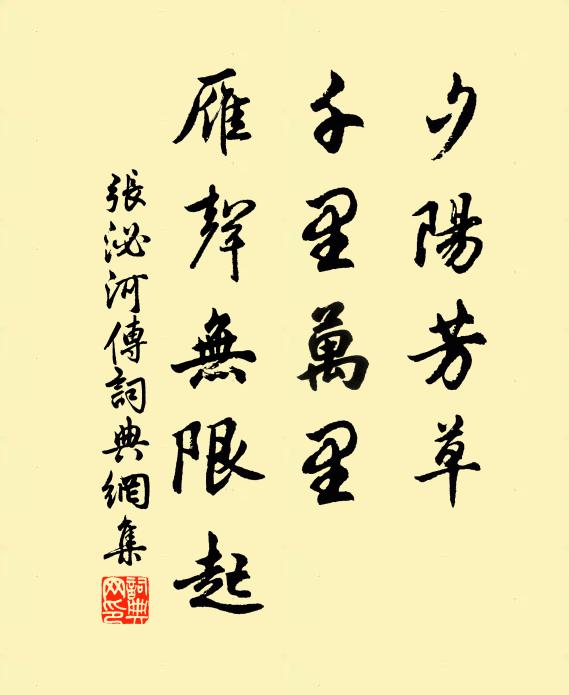 夕陽芳草
千里萬里
雁聲無限起
張泌河傳詞典網集
詞典網印